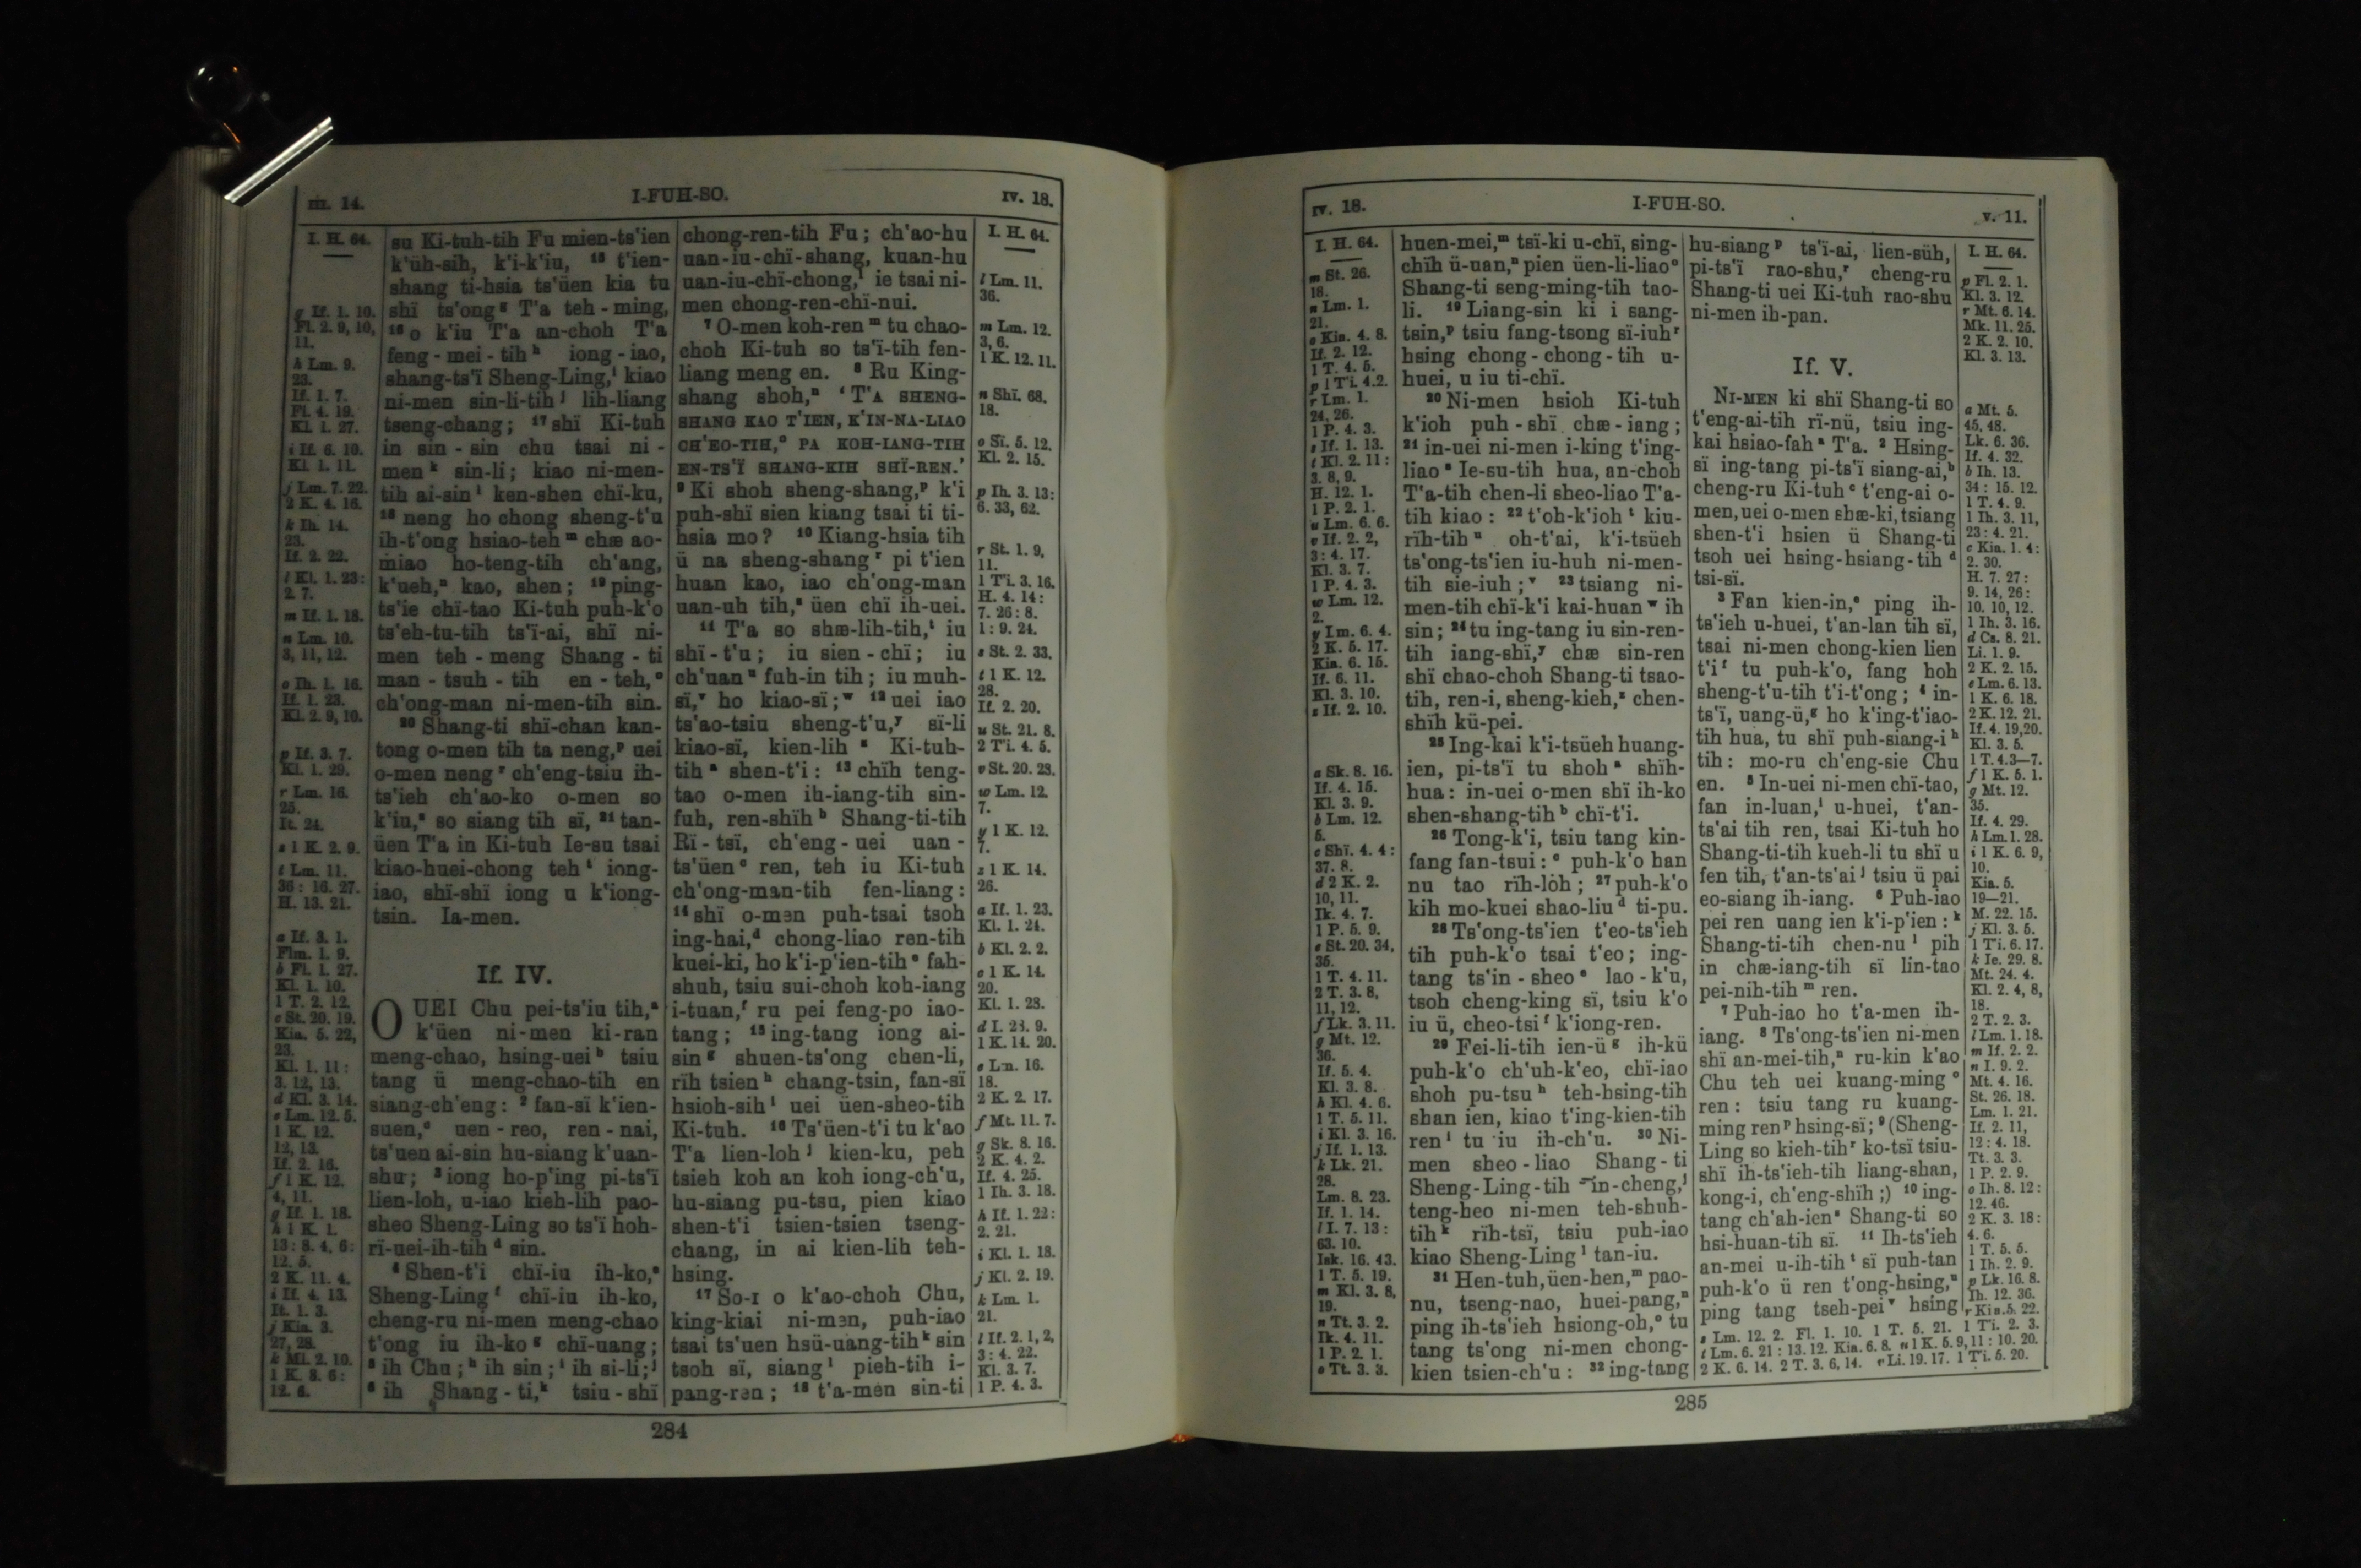 III. 14.
I-FUH-SO.
IV. 18.
I. H. 64.
g If. 1. 10.
Fl. 2. 9, 10,
11.
h Lm. 9.
23.
If. 1. 7.
Fl. 4. 19.
Kl. 1. 27.
i If. 6. 10.
Kl 1. 11.
j Lm. 7. 22.
2 K. 4. 16.
k Ih. 14.
23.
If. 2. 22.
l Kl. 1. 23:
2. 7.
m If. 1. 18.
n Lm. 10.
3, 11, 12.
o Ih. 1. 16.
If. 1. 23.
Kl. 2. 9, 10.
p If. 3. 7.
Kl. 1. 29.
r Lm. 16.
25.
It. 24.
s 1 K. 2. 9.
t Lm. 11.
36: 16. 27.
H. 13. 21.
a If. 3. 1.
Flm. 1. 9.
b Fl. 1. 27.
Kl. 1. 10.
1 T. 2. 12.
c St. 20. 19.
Kia. 5. 22,
23.
Kl. 1. 11:
3. 12, 13.
d Kl. 3. 14.
e Lm. 12. 5.
1 K. 12.
12, 13.
If. 2. 16.
f 1 K. 12.
4, 11.
g If. 1. 18.
h 1 K. 1.
13: 8. 4, 6:
12. 5.
2 K. 11. 4.
i If. 4. 13.
It. 1. 3.
j Kia. 3.
27, 28.
k Ml. 2. 10.
1 K. 8. 6:
12. 6.
su Ki-tuh-tih Fu mien-ts'ien
k'üh-sih, k'i-k'iu, 15 t'ien-
shang ti-hsia ts'üen kia tu
shï ts'ong g T'a teh-ming,
16 o k'iu T'a an-choh T'a
feng-mei-tih h iong-iao,
shang-ts'ï Sheng-Ling, i kiao
ni-men sin-li-tih j lih-liang
tseng-chang; 17 shï Ki-tuh
in sin-sin chu tsai ni-
men k sin-li; kiao ni-men-
tih ai-sin l ken-shen chï-ku,
18 neng ho chong sheng-t'u
ih-t'ong hsiao-teh m chæ ao-
miao ho-teng-tih ch'ang,
k'ueh, n kao, shen; 19 ping-
ts'ie chï-tao Ki-tuh puh-k'o
ts'eh-tu-tih ts'ï-ai, shï ni-
men teh-meng Shang-ti
man-tsuh-tih en-teh, o
ch'ong-man ni-men-tih sin.
20 Shang-ti shï-chan kan-
tong o-men tih ta neng, p uei
o-men neng r ch'eng-tsiu ih-
ts'ieh ch'ao-ko o-men so
k'iu, s so siang tih sï, 21 tan-
üen T'a in Ki-tuh Ie-su tsai
kiao-huei-chong teh t iong-
iao, shï-shï iong u k'iong-
tsin. Ia-men.
If. IV.
O UEI Chu pei-ts'iu tih, a
k'üen ni-men ki-ran
meng-chao, hsing-uei b tsiu
tang ü meng-chao-tih en
siang-ch'eng: 2 fan-sï k'ien-
suen, c uen-reo, ren-nai,
ts'uen ai-sin hu-siang k'uan-
shu; 3 iong ho-p'ing pi-ts'ï
lien-loh, u-iao kieh-lih pao-
sheo Sheng-Ling so ts'ï hoh-
rï-uei-ih-tih d sin.
4 Shen-t'i chï-iu ih-ko, e
Sheng-Ling f chï-iu ih-ko,
cheng-ru ni-men meng-chao
t'ong iu ih-ko g chï-uang;
5 ih Chu; h ih sin; i ih si-li; j
6 ih Shang-ti, k tsiu-shï
chong-ren-tih Fu; ch'ao-hu
uan-iu-chï-shang, kuan-hu
uan-iu-chï-chong, l ie tsai ni-
men chong-ren-chï-nui.
7 O-men koh-ren m tu chao-
choh Ki-tuh so ts'ï-tih fen-
liang meng en. 8 Ru King-
shang shoh, n 'T'A SHENG-
SHANG KAO T'IEN, K'IN-NA-LIAO
CH'EO-TIH, o PA KOH-IANG-TIH
EN-TS'Ï SHANG-KIH SHÏ-REN.'
9 Ki shoh sheng-shang, p k'i
puh-shï sien kiang tsai ti ti-
hsia mo? 10 Kiang-hsia tih
ü na sheng-shang r pi t'ien
huan kao, iao ch'ong-man
uan-uh tih, s üen chï ih-uei.
11 T'a so shæ-lih-tih, t iu
shï-t'u; iu sien-chï; iu
ch'uan u fuh-in tih; iu muh-
sï, v ho kiao-sï; w 12 uei iao
ts'ao-tsiu sheng-t'u, y sï-li
kiao-sï, kien-lih z Ki-tuh-
tih a shen-t'i: 13 chïh teng-
tao o-men ih-iang-tih sin-
fuh, ren-shïh b Shang-ti-tih
Rï-tsï, ch'eng-uei uan-
ts'üen c ren, teh iu Ki-tuh
ch'ong-man-tih fen-liang:
14 shï o-men puh-tsai tsoh
ing-hai, d chong-liao ren-tih
kuei-ki, ho k'i-p'ien-tih e fah-
shuh, tsiu sui-choh koh-iang
i-tuan, f ru pei feng-po iao-
tang; 15 ing-tang iong ai-
sin g shuen-ts'ong chen-li,
rïh tsien h chang-tsin, fan-sï
hsioh-sih i uei üen-sheo-tih
Ki-tuh. 16 Ts'üen-t'i tu k'ao
T'a lien-loh j kien-ku, peh
tsieh koh an koh iong-ch'u,
hu-siang pu-tsu, pien kiao
shen-t'i tsien-tsien tseng-
chang, in ai kien-lih teh-
hsing.
17 So-I o k'ao-choh Chu,
king-kiai ni-men, puh-iao
tsai ts'uen hsü-uang-tih k sin
tsoh sï, siang l pieh-tih i-
pang-ren; 18 t'a-men sin-ti
I. H. 64.
l Lm. 11.
36.
m Lm. 12.
3, 6.
1 K. 12. 11.
n Shï. 68.
18.
o Sï. 5. 12.
Kl. 2. 15.
p Ih. 3. 13:
6. 33, 62.
r St. 1. 9,
11.
1 Ti. 3. 16.
H. 4. 14:
7. 26: 8.
1: 9. 24.
s St. 2. 33.
t 1 K. 12.
28.
If. 2. 20.
u St. 21. 8.
2 Ti. 4. 5.
v St. 20. 28.
w Lm. 12.
7.
y 1 K. 12.
7.
z 1 K. 14.
26.
a If. 1. 23.
Kl. 1. 24.
b Kl. 2. 2.
c 1 K. 14.
20.
Kl. 1. 28.
d I. 28. 9.
1 K. 14. 20.
e Lm. 16.
18.
2 K. 2. 17.
f Mt. 11. 7.
g Sk. 8. 16.
2 K. 4. 2.
If. 4. 25.
1 Ih. 3. 18.
h If. 1. 22:
2. 21.
i Kl. 1. 18.
j Kl. 2. 19.
k Lm. 1.
21.
l If. 2. 1, 2,
3: 4. 22.
Kl. 3. 7.
1 P. 4. 3.
284
IV. 18.
I-FUH-SO.
V. 11.
I. H. 64.
m St. 26.
18.
n Lm. 1.
21.
o Kia. 4. 8.
If. 2. 12.
1 T. 4. 5.
p 1 Ti. 4. 2.
r Lm. 1.
24, 26.
1 P. 4. 3.
s If. 1. 13.
t Kl. 2. 11:
3. 8, 9.
H. 12. 1.
1 P. 2. 1.
u Lm. 6. 6.
v If. 2. 2,
3: 4. 17.
Kl. 3. 7.
1 P. 4. 3.
w Lm. 12.
2.
y Lm. 6. 4.
2 K. 5. 17.
Kia. 6. 15.
If. 6. 11.
Kl. 3. 10.
z If. 2. 10.
a Sk. 8. 16.
If. 4. 15.
Kl. 3. 9.
b Lm. 12.
5.
c Shï. 4. 4:
37. 8.
d 2 K. 2.
10, 11.
Ik. 4. 7.
1 P. 5. 9.
e St. 20. 34,
35.
1 T. 4. 11.
2 T. 3. 8,
11, 12.
f Lk. 3. 11.
g Mt. 12.
36.
If. 5. 4.
Kl. 3. 8.
h Kl. 4. 6.
1 T. 5. 11.
i Kl. 3. 16.
j If. 1. 13.
k Lk. 21.
28.
Lm. 8. 23.
If. 1. 14.
l I. 7. 13:
63. 10.
Isk. 16. 43.
1 T. 5. 19.
m Kl. 3. 8,
19.
n Tt. 3. 2.
Ik. 4. 11.
1 P. 2. 1.
o Tt. 3. 3.
huen-mei, m tsï-ki u-chï, sing-
chïh ü-uan, n pien üen-li-liao o
Shang-ti seng-ming-tih tao-
li. 19 Liang-sin ki i sang-
tsin, p tsiu fang-tsong sï-iuh r
hsing chong-chong-tih u-
huei, u iu ti-chï.
20 Ni-men hsioh Ki-tuh
k'ioh puh-shï chæ-iang;
21 in-uei ni-men i-king t'ing-
liao s Ie-su-tih hua, an-choh
T'a-tih chen-li sheo-liao T'a-
tih kiao: 22 t'oh-k'ioh t kiu-
rïh-tih u oh-t'ai, k'i-tsüeh
ts'ong-ts'ien iu-huh ni-men-
tih sie-iuh; v 23 tsiang ni-
men-tih chï-k'i kai-huan w ih
sin; 24 tu ing-tang iu sin-ren-
tih iang-shï, y chæ sin-ren
shï chao-choh Shang-ti tsao-
tih, ren-i, sheng-kieh, z chen-
shïh kü-pei.
25 Ing-kai k'i-tsüeh huang-
ien, pi-ts'ï tu shoh a shïh-
hua: in-uei o-men shï ih-ko
shen-shang-tih b chï-t'i.
26 Tong-k'i, tsiu tang kin-
fang fan-tsui: c puh-k'o han
nu tao rïh-loh; 27 puh-k'o
kih mo-kuei shao-liu d ti-pu.
28 Ts'ong-ts'ien t'eo-ts'ieh
tih puh-k'o tsai t'eo; ing-
tang ts'in-sheo e lao-k'u,
tsoh cheng-king sï, tsiu k'o
iu ü, cheo-tsi f k'iong-ren.
29 Fei-li-tih ien-ü g ih-kü
puh-k'o ch'uh-k'eo, chï-iao
shoh pu-tsu h teh-hsing-tih
shan ien, kiao t'ing-kien-tih
ren i tu iu ih-ch'u. 30 Ni-
men sheo-liao Shang-ti
Sheng-Ling-tih in-cheng, j
teng-heo ni-men teh-shuh-
tih k rïh-tsï, tsiu puh-iao
kiao Sheng-Ling l tan-iu.
31 Hen-tuh, üen-hen, m pao-
nu, tseng-nao, huei-pang, n
ping ih-ts'ieh hsiong-oh, o tu
tang ts'ong ni-men chong-
kien tsien-ch'u: 32 ing-tang
hu-siang p ts'ï-ai, lien-süh,
pi-ts'ï rao-shu, r cheng-ru
Shang-ti uei Ki-tuh rao-shu
ni-men ih-pan.
If. V.
NI-MEN ki shï Shang-ti so
t'eng-ai-tih rï-nü, tsiu ing-
kai hsiao-fah a T'a. 2 Hsing-
sï ing-tang pi-ts'ï siang-ai, b
cheng-ru Ki-tuh c t'eng-ai o-
men, uei o-men shæ-ki, tsiang
shen-t'i hsien ü Shang-ti
tsoh uei hsing-hsiang-tih d
tsi-sï.
3 Fan kien-in, e ping ih-
ts'ieh u-huei, t'an-lan tih sï,
tsai ni-men chong-kien lien
t'i f tu puh-k'o, fang hoh
sheng-t'u-tih t'i-t'ong; 4 in-
ts'ï, uang-ü, g ho k'ing-t'iao-
tih hua, tu shï puh-siang-i h
tih: mo-ru ch'eng-sie Chu
en. 5 In-uei ni-men chï-tao,
fan in-luan, i u-huei, t'an-
ts'ai tih ren, tsai Ki-tuh ho
Shang-ti-tih kueh-li tu shï u
fen tih, t'an-ts'ai j tsiu ü pai
eo-siang ih-iang. 6 Puh-iao
pei ren uang ien k'i-p'ien: k
Shang-ti-tih chen-nu l pih
in chæ-iang-tih sï lin-tao
pei-nih-tih m ren.
7 Puh-iao ho t'a-men ih-
iang. 8 Ts'ong-ts'ien ni-men
shï an-mei-tih, n ru-kin k'ao
Chu teh uei kuang-ming o
ren: tsiu tang ru kuang-
ming ren p hsing-sï; 9 (Sheng-
Ling so kieh-tih r ko-tsï tsiu-
shï ih-ts'ieh-tih liang-shan,
kong-i, ch'eng-shïh;) 10 ing-
tang ch'ah-ien s Shang-ti so
hsi-huan-tih sï. 11 Ih-ts'ieh
an-mei u-ih-tih t sï puh-tan
puh-k'o ü ren t'ong-hsing, u
ping tang tseh-pei v hsing
I. H. 64.
p Fl. 2. 1.
Kl. 3. 12.
r Mt. 6. 14.
Mk. 11. 25.
2 K. 2. 10.
Kl. 3. 13.
a Mt. 5.
45, 48.
Lk. 6. 36.
If. 4. 32.
b Ih. 13.
34: 15. 12.
1 T. 4. 9.
1 Ih. 3. 11,
23: 4. 21.
c Kia. 1. 4:
2. 30.
H. 7. 27:
9. 14, 26:
10. 10, 12.
1 Ih. 3. 16.
d Cs. 8. 21.
Li. 1. 9.
2 K. 2. 15.
e Lm. 6. 13.
1 K. 6. 18.
2 K. 12. 21.
If. 4. 19, 20.
Kl. 3. 5.
1 T. 4. 3—7.
f 1 K. 5. 1.
g Mt. 12.
35.
If. 4. 29.
h Lm. 1. 28.
i 1 K. 6. 9,
10.
Kia. 5.
19—21.
M. 22. 15.
j Kl. 3. 5.
1 Ti. 6. 17.
k Ie. 29. 8.
Mt. 24. 4.
Kl. 2. 4, 8,
18.
2 T. 2. 3.
l Lm. 1. 18.
m If. 2. 2.
n I. 9. 2.
Mt. 4. 16.
St. 26. 18.
Lm. 1. 21.
If. 2. 11,
12: 4. 18.
Tt. 3. 3.
1 P. 2. 9.
o Ih. 8. 12:
12. 46.
2 K. 3. 18:
4. 6.
1 T. 5. 5.
1 Ih. 2. 9.
p Lk. 16. 8.
Ih. 12. 36.
r Kia. 5. 22.
s Lm. 12. 2. Fl. 1. 10. 1 T. 5. 21. 1 Ti. 2. 3.
t Lm. 6. 21: 13. 12. Kia. 6. 8. u 1 K. 5. 9, 11: 10. 20.
2 K. 6. 14. 2 T. 3. 6, 14. v Li. 19. 17. 1 Ti. 5. 20.
285